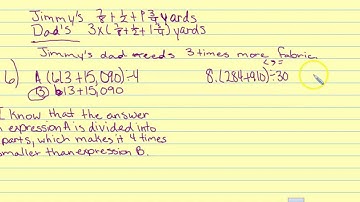 Jimmy's 7/8 + 1/2 + 1 3/4 yards
Dad's 3×(7/8 + 1/2 + 1 3/4) yards
Jimmy's dad needs 3 times more fabric.
6) A (613+15,090)÷4
B 613+15,090
8. (284+910)÷30
I know that the answer
n expression A is divided into
parts, which makes it 4 times
smaller than expression B.